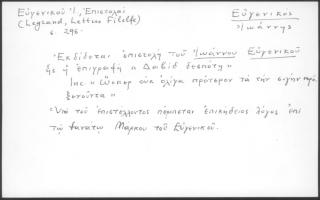 Εὐγενικοῦ Ἰ, Ἐπιστολαί
(Legrand, Lettres Filelfe)
σ. 296
Εὐγενικος
Ἰωάννης
Ἐκδίδοται ἐπιστολὴ τοῦ Ἰωάννου Εὐγενικοῦ
ἧς ἡ ἐπιγραφὴ «Δαβίδ δεσπότῃ»
Inc «Ὥσπερ οὐκ ὀλίγα πρότερον τὰ τὴν σιγὴν
»
Ὑπὸ τοῦ ἐπιστέλλοντος πέμπεται ἐπικήδειος λόγος ἐπὶ
τῷ θανάτῳ Μάρκου τοῦ Εὐγενικοῦ.